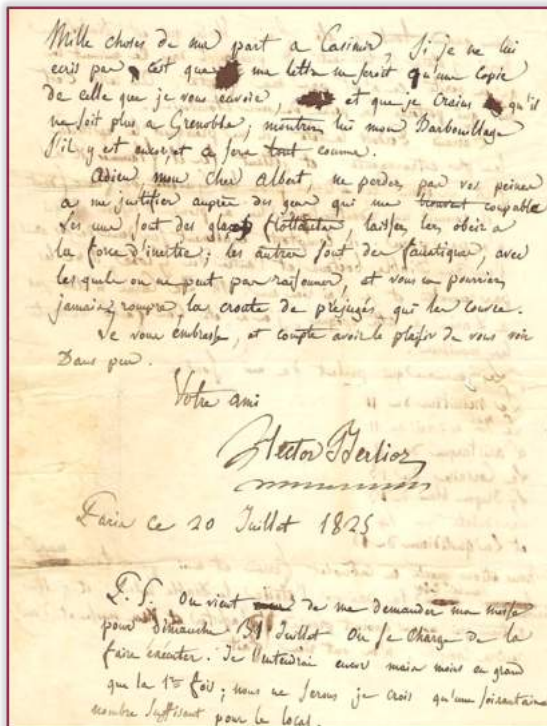 Mille choses de ma part a Casimir, Si je ne lui
ecris pas, c'est que ma lettre ne seroit qu'une copie
de celle que je vous envoie, et que je crains qu'il
ne soit plus a Grenoble; montrez lui mon Barbouillage
S'il y est encor, et ce sera tout comme.
Adieu mon cher Albert, ne perdez pas vos peines
a me justifier auprès des gens qui me trouvent coupable
Les uns sont des glaces flottantes, laissez les obéir a
la force d'inertie; les autres sont des fanatiques, avec
les quels on ne peut pas raisonner, et vous ne pourriez
jamais rompre la croute de préjugés qui les couvre.
Je vous embrasse, et compte avoir le plaisir de vous voir
Dans peu.
Votre ami
Hector Berlioz
Paris ce 20 Juillet 1825
P.S. On vient de me demander ma messe
pour dimanche 31 Juillet On se charge de la
faire exécuter. Je l'entendrai encor mais moins en grand
que la 1re fois; nous ne serons je crois qu'une soixantaine
nombre suffisant pour le local.